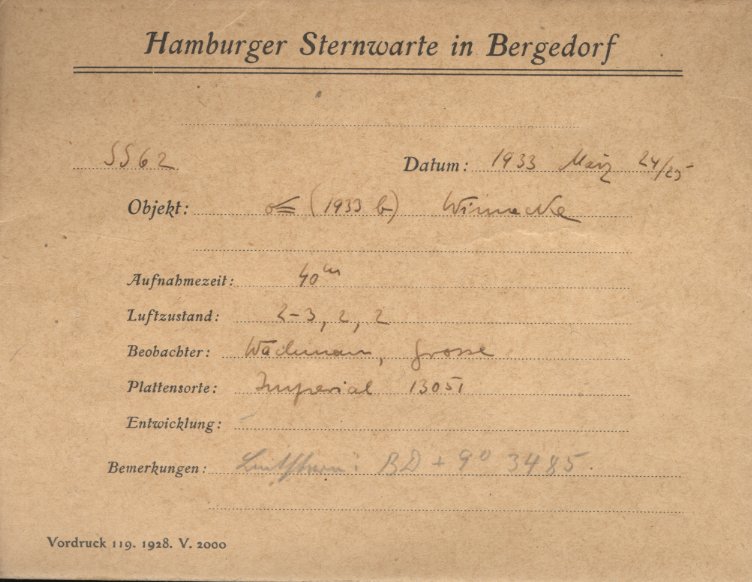 Hamburger Sternwarte in Bergedorf
SS62 Datum: 1933 März 24/25
Objekt: ☄ (1933 b) Winnecke
Aufnahmezeit: 40m
Luftzustand: 2-3, 2, 2
Beobachter: Wachmann, Grosse
Plattensorte: Imperial 13051
Entwicklung:
Bemerkungen: Leitstern: BD + 9° 3485.
Vordruck 119. 1928. V. 2000